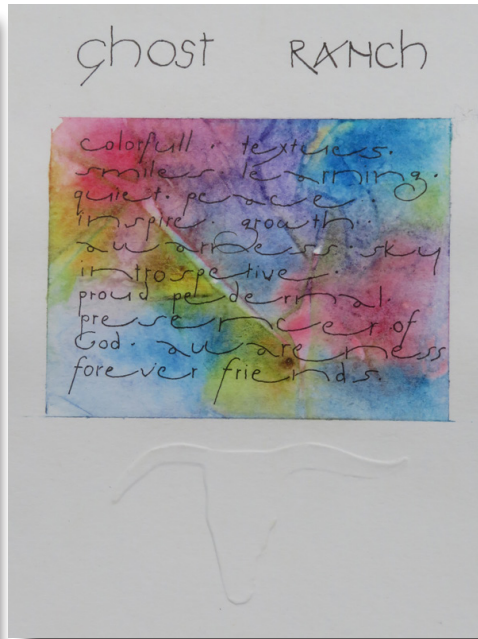 Ghost RANCh
colorfull · textures.
smiles. learning.
quiet. peace.
inspire. growth.
awarness. sky
introspective.
proud
presence of
God. awareness
forever friends.